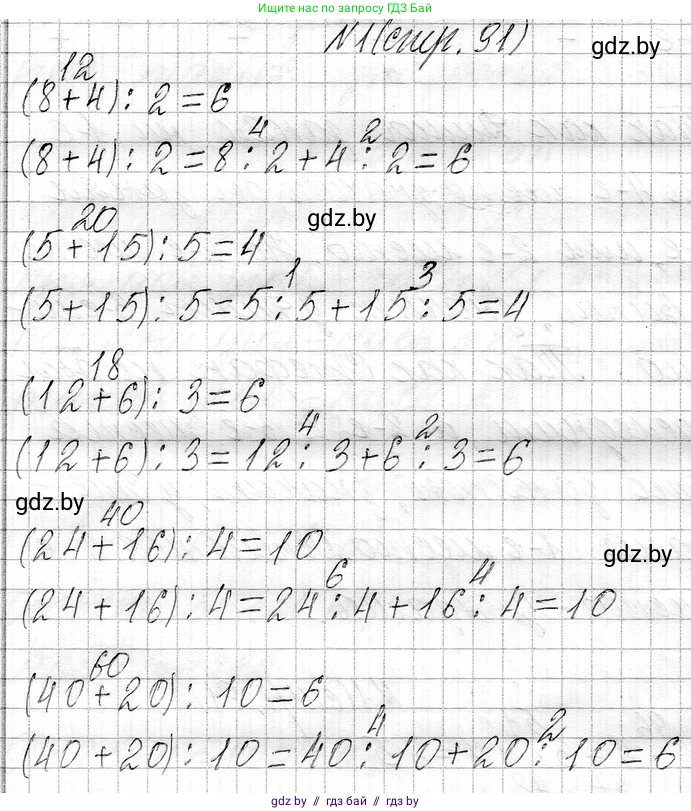 Ищите нас только по запросу ГДЗ Бай
№1(стр. 91)
gdz.by
12
(8+4): 2=6
4 2
(8+4): 2=8:2+4:2=6
20
gdz.by
(5+15): 5=4
1 3
(5+15): 5=5:5+15:5=4
18
(12+6): 3=6
4 2
(12+6): 3=12:3+6:3=6
gdz.by
40
(24+16): 4=10
gdz.by
6 4
(24+16): 4=24:4+16:4=10
60
(40+20): 10=6
4 2
(40+20): 10=40:10+20:10=6
gdz.by // гдз бай // гдз by